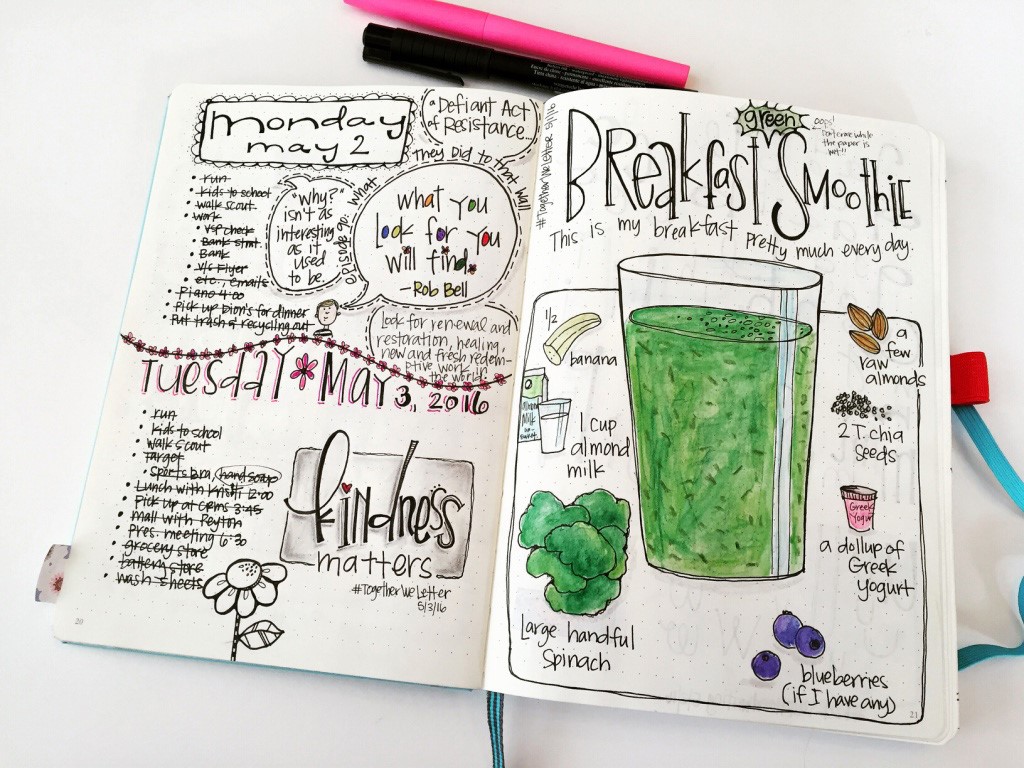 monday
may 2
run
kids to school
walk scout
work
VSP check
Bank stmt.
Bank
V/S Flyer
etc., emails
Piano 4:00
Pick up Dion's for dinner
Put trash & recycling out
a Defiant Act
of Resistance...
They Did to that Wall
Episode 90: What
"Why?"
isn't as
interesting
as it
used
to be.
what you
look for you
will find.
-Rob Bell
Look for renewal and
restoration, healing,
new and fresh redem-
ptive work in
the world.
Tuesday May 3, 2016
run
kids to school
walk scout
Target
Sports Bra, hand soap
Lunch with Kristi 12:00
Pick up at CRMS 3:45
mall with Peyton
Pres. meeting 6:30
grocery store
battery store
wash sheets
kindness
matters
#TogetherWeLetter
5/3/16
20
#TogetherWeLetter 5/1/16
green
oops!
Don't erase while
the paper is
wet!!
Breakfast Smoothie
This is my breakfast pretty much every day.
1/2
banana
Almond
Milk
1 cup
almond
milk
large handful
Spinach
a
few
raw
almonds
2 T. chia
seeds
Greek
Yogurt
a dollup of
Greek
yogurt
blueberries
(if I have any)
21